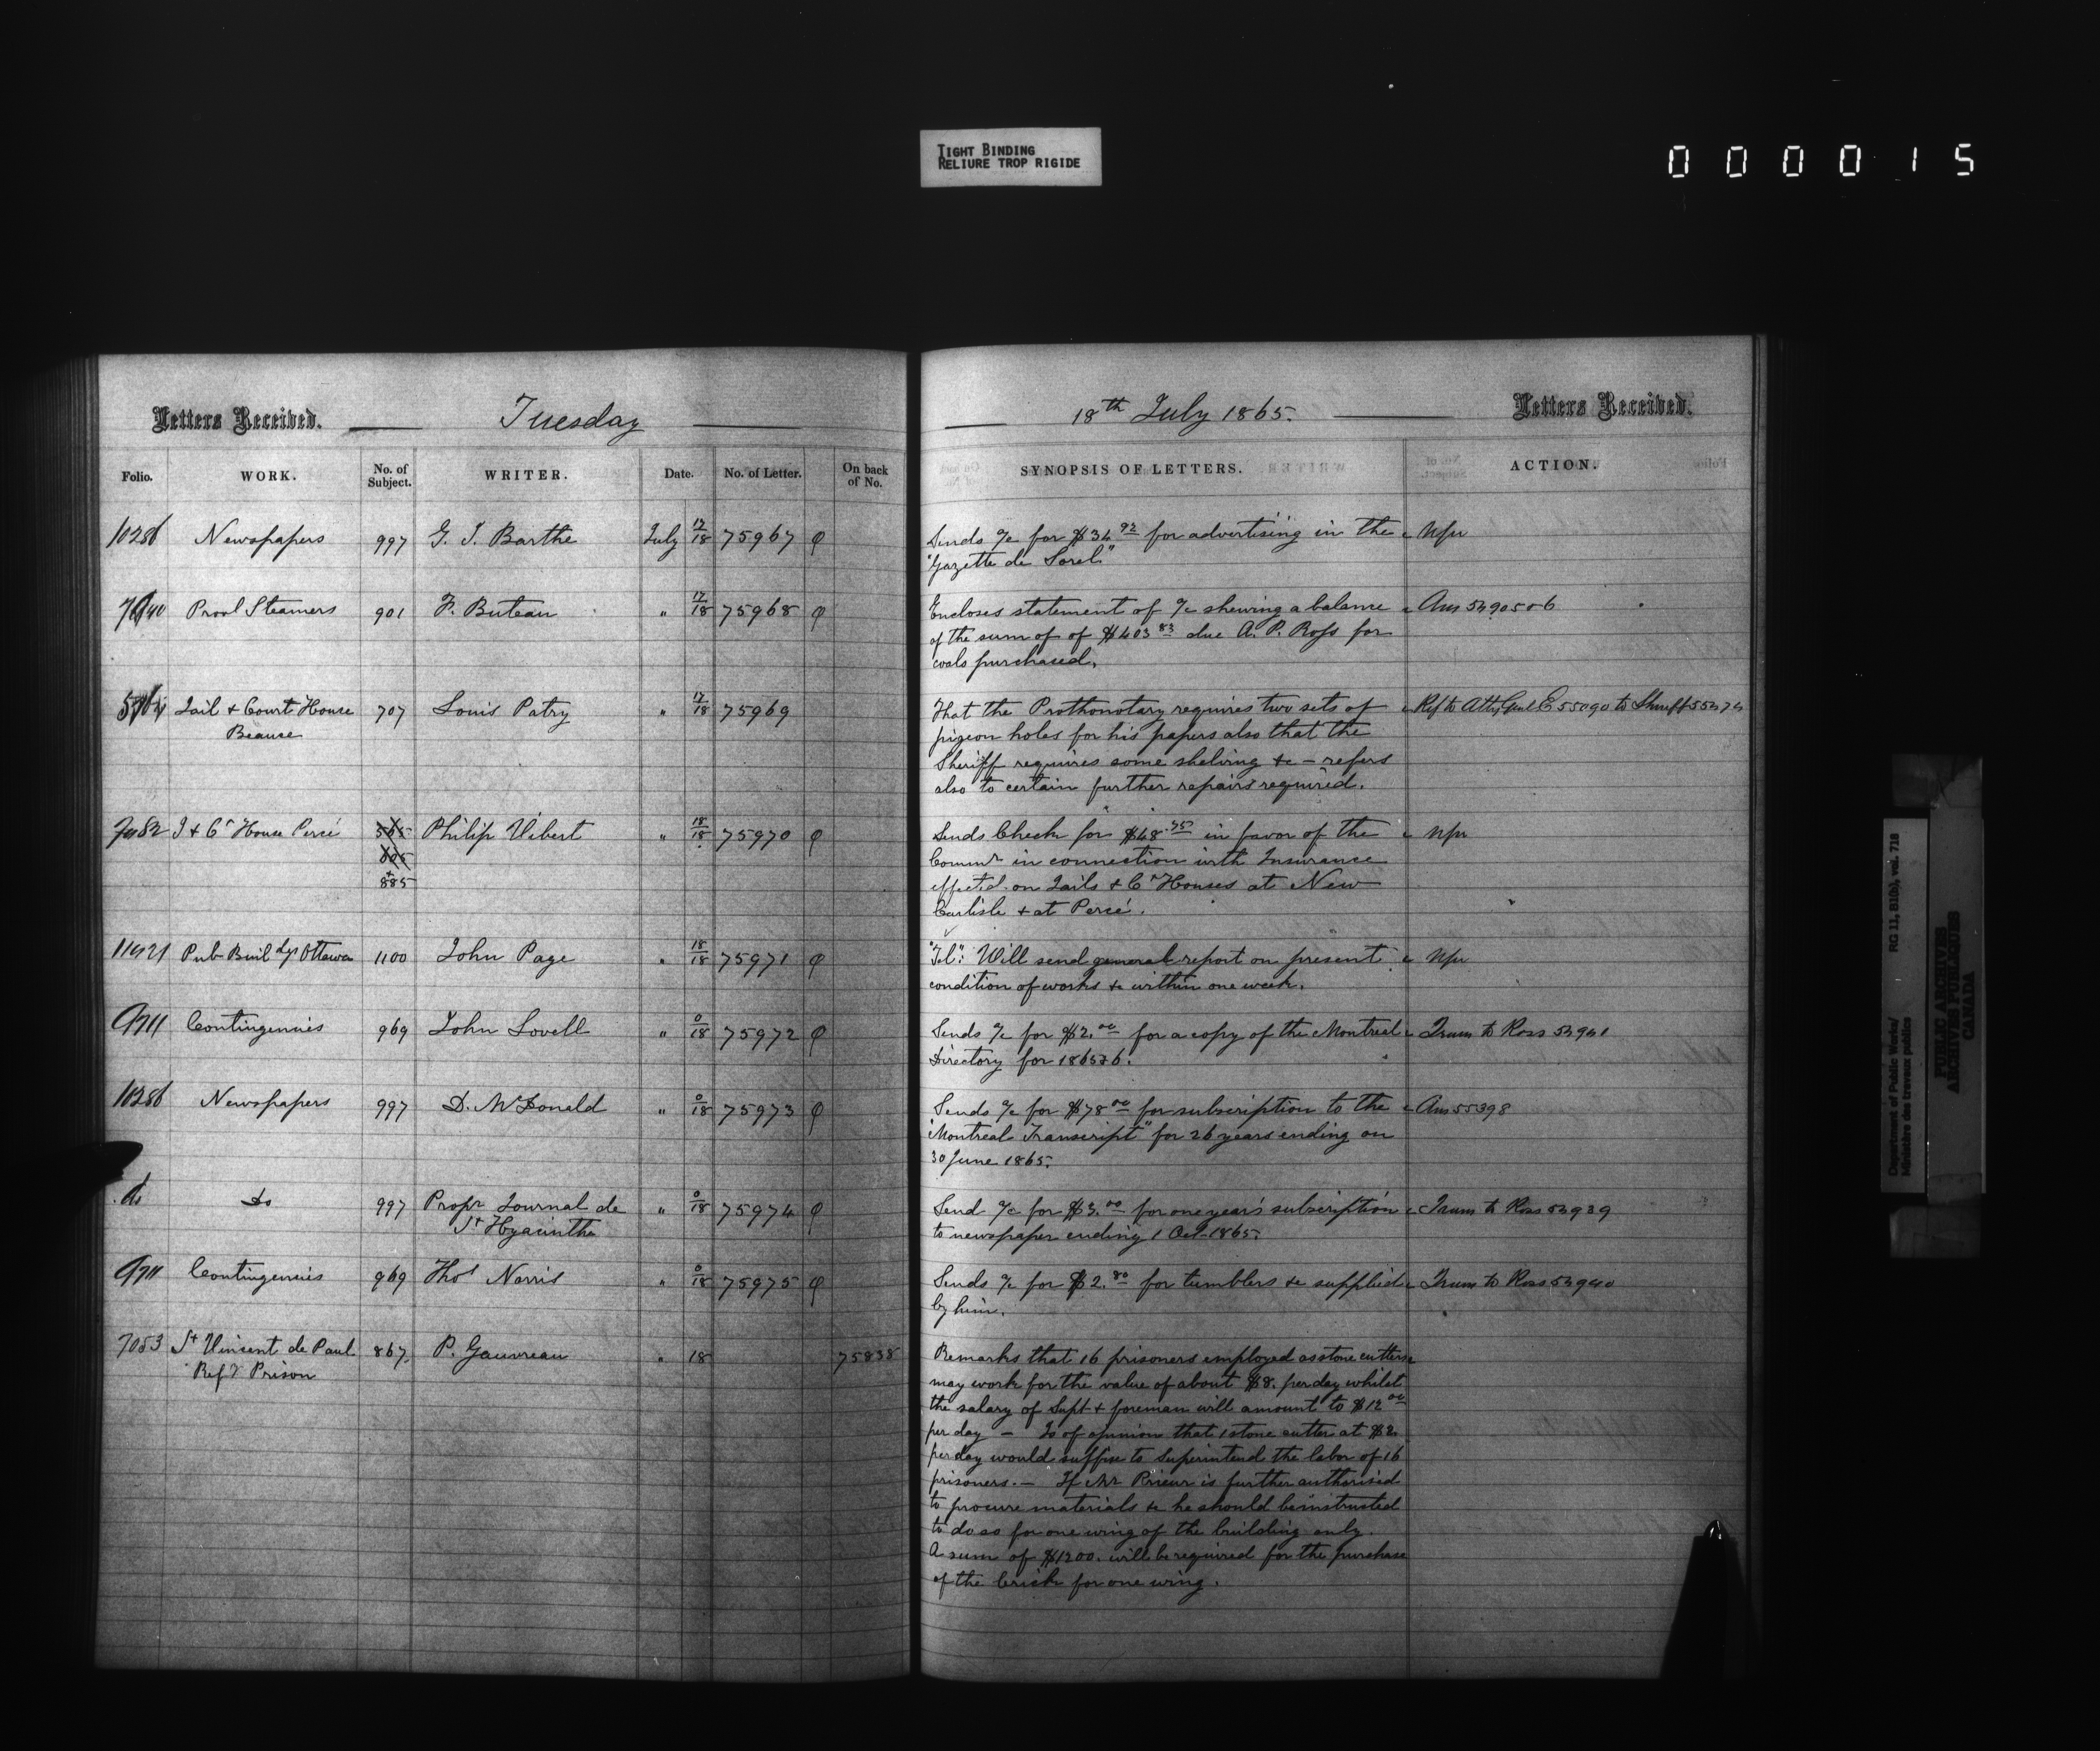 TIGHT BINDING
RELIURE TROP RIGIDE
000015
Letters Received. Tuesday
Folio. WORK. No. of Subject. WRITER. Date. No. of Letter. On back of No.
10286 Newspapers 997 G. I. Barthe July 17/18 75967
Provl Steamers 901 F. Buteau " 17/18 75968
Jail & Court House 707 Louis Patry " 17/18 75969
Beauce
J & Ct House Percé 565 Philip Vibert " 18/18 75970
805
+
885
11421 Pub Buildgs Ottawa 1100 John Page " 18/18 75971
9711 Contingencies 969 John Lovell " 0/18 75972
10286 Newspapers 997 D. McDonald " 0/18 75973
do Do 997 Propr Journal de " 0/18 75974
St Hyacinthe
9711 Contingencies 969 Thos Norris " 0/18 75975
7053 St Vincent de Paul 867 P. Gauvreau " 18 75838
Refy Prison
18th July 1865. Letters Received.
SYNOPSIS OF LETTERS. ACTION.
Sends a/c for $34 92 for advertising in the Npr
"Gazette de Sorel"
Encloses statement of a/c shewing a balance Ans
of the sum of of $403 83 due A. P. Ross for
coals purchased.
That the Prothonotary requires two sets of Ref to Atty Genl E 55090 to Sheriff
pigeon holes for his papers also that the
Sheriff requires some shelving &c – refers
also to certain further repairs required.
Sends Check for $48. in favor of the Npr
Commr in connection with Insurance
effected on Jails & Ct Houses at New
Carlisle & at Percé.
"Tel": Will send general report on present Npr
condition of works &c within one week.
Sends a/c for $2.00 for a copy of the Montreal Trans to Ross 54941
Directory for 1865 & 6.
Sends a/c for $78 00 for subscription to the Ans 55398
"Montreal Transcript" for 26 years ending on
30 June 1865.
Send a/c for $3.00 for one year's subscription Trans to Ross 54939
to newspaper ending 1 Oct. 1865.
Sends a/c for $2.80 for tumblers &c supplied Trans to Ross 54940
by him.
Remarks that 16 prisoners employed as stone cutters
may work for the value of about $8. per day whilst
the salary of Supt & foreman will amount to $12 00
per day – Is of opinion that 1 stone cutter at $2.
per day would suffice to superintend the labor of 16
prisoners. – If Mr Prieur is further authorised
to procure materials &c he should be instructed
to do so for one wing of the building only.
A sum of $1200. will be required for the purchase
of the brick for one wing.
Department of Public Works/ RG 11, B1(b), vol. 718
Ministère des travaux publics
PUBLIC ARCHIVES
ARCHIVES PUBLIQUES
CANADA